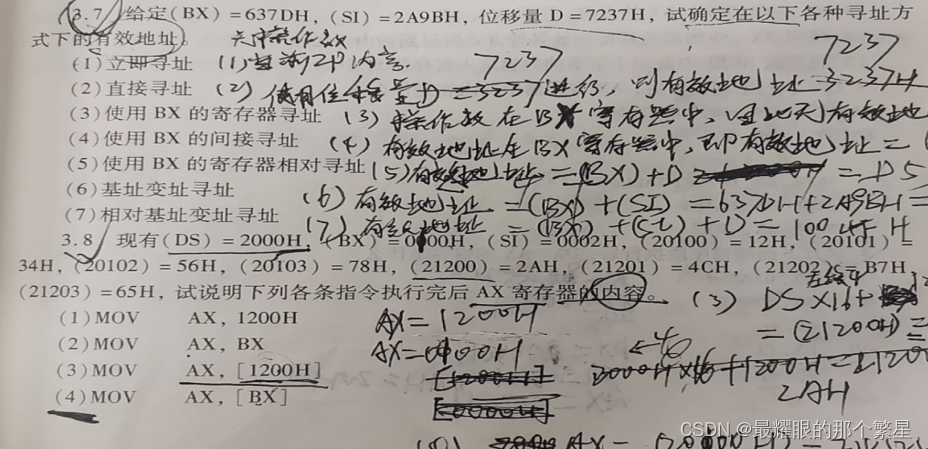 3.7 给定(BX)=637DH,(SI)=2A9BH,位移量 D=7237H,试确定在以下各种寻址方
式下的有效地址。 7237
(1)立即寻址 7237
(2)直接寻址 (2) 使用位移量D =3237进行, 则有效地址 3237H
(3)使用 BX 的寄存器寻址 (3) 操作数在BX寄存器中,因此无有效地
(4)使用 BX 的间接寻址 (4) 有效地址在BX寄存器中,即有效地址 =
(5)使用 BX 的寄存器相对寻址 (5)有效地址 =(BX)+D = D5
(6)基址变址寻址 (6) 有效地址 =(BX)+(SI)=637DH+2A9BH=
(7)相对基址变址寻址 (7) 有效地址 =(BX)+(SI)+D=1004FH
3.8 现有(DS)=2000H,(BX)=0100H,(SI)=0002H,(20100)=12H,(20101)=
34H,(20102)=56H,(20103)=78H,(21200)=2AH,(21201)=4CH,(21202)=B7H,
(21203)=65H,试说明下列各条指令执行完后 AX 寄存器的内容。 (3) DS×16+
(1)MOV AX,1200H AX=1200H =(21200H)=
(2)MOV AX,BX AX=0100H
(3)MOV AX,[1200H] [1200H] 2000H×16+1200H=2120
(4)MOV AX,[BX] [0000H] 2AH
CSDN @最耀眼的那个繁星